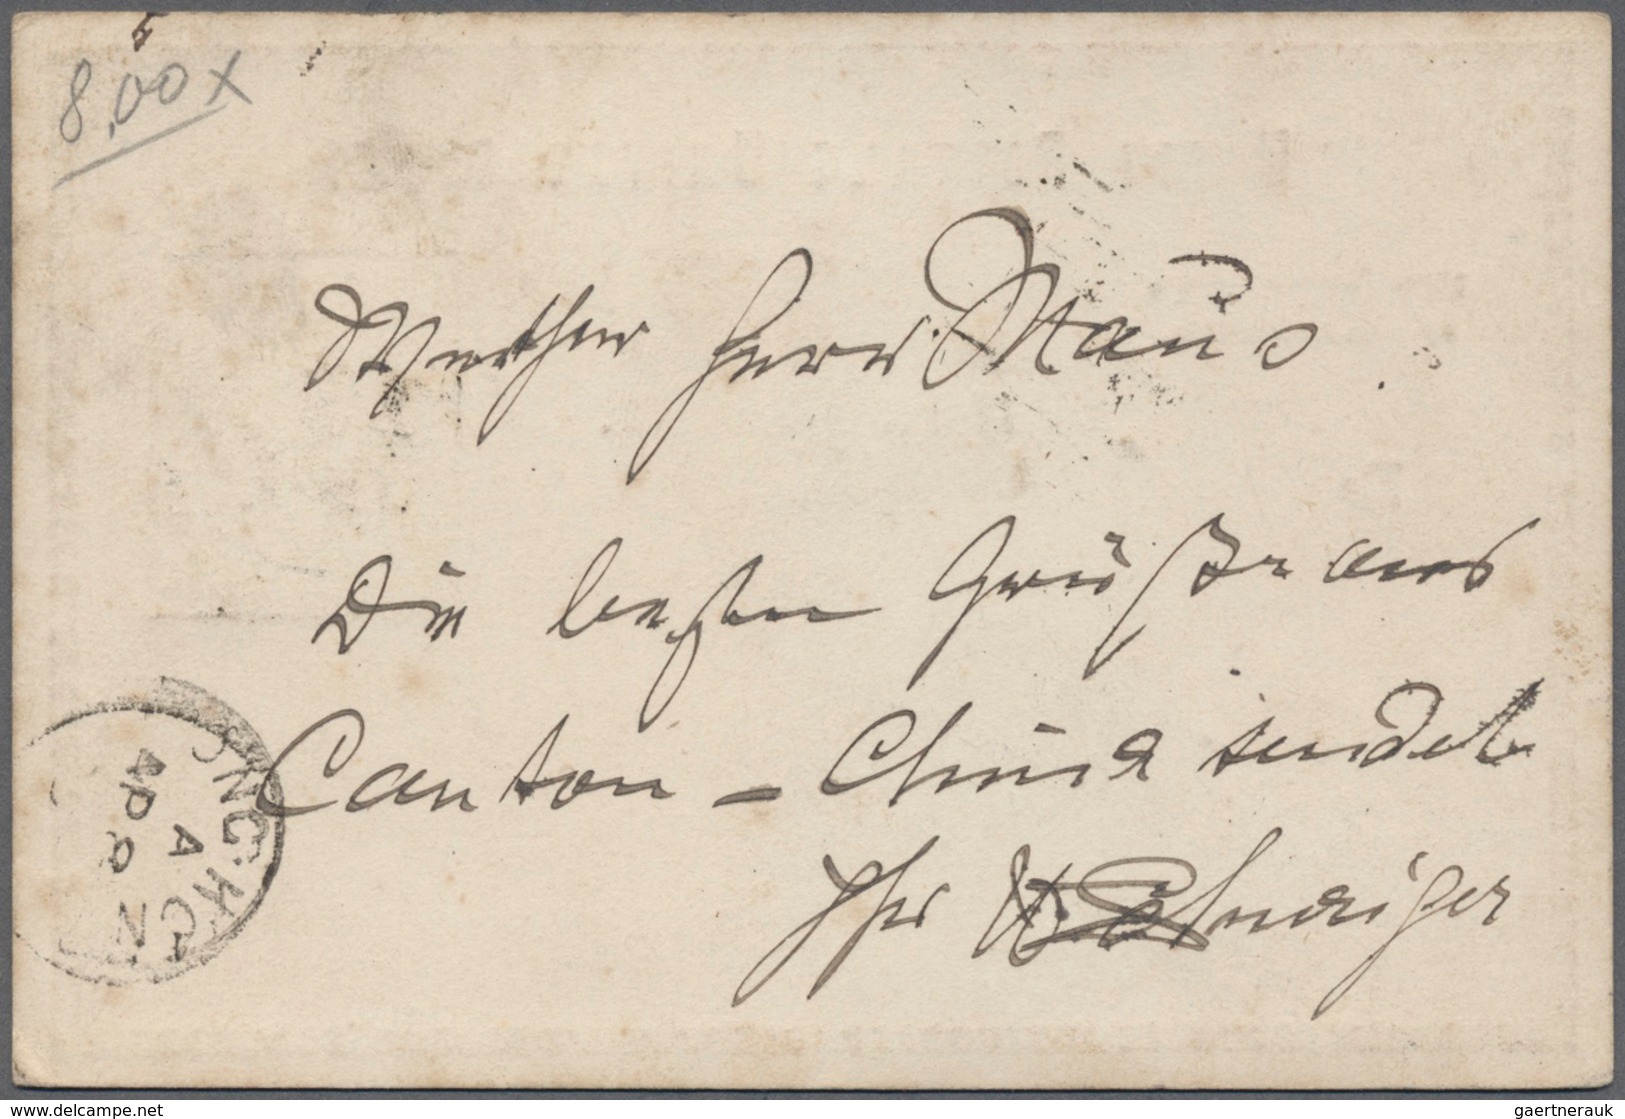 8,00 x
Werther Herr Maus
Die besten Grüße aus
Canton – China sendet
Ihr
ONG KONG
A
AP 2
www.delcampe.net
gaertnerauk